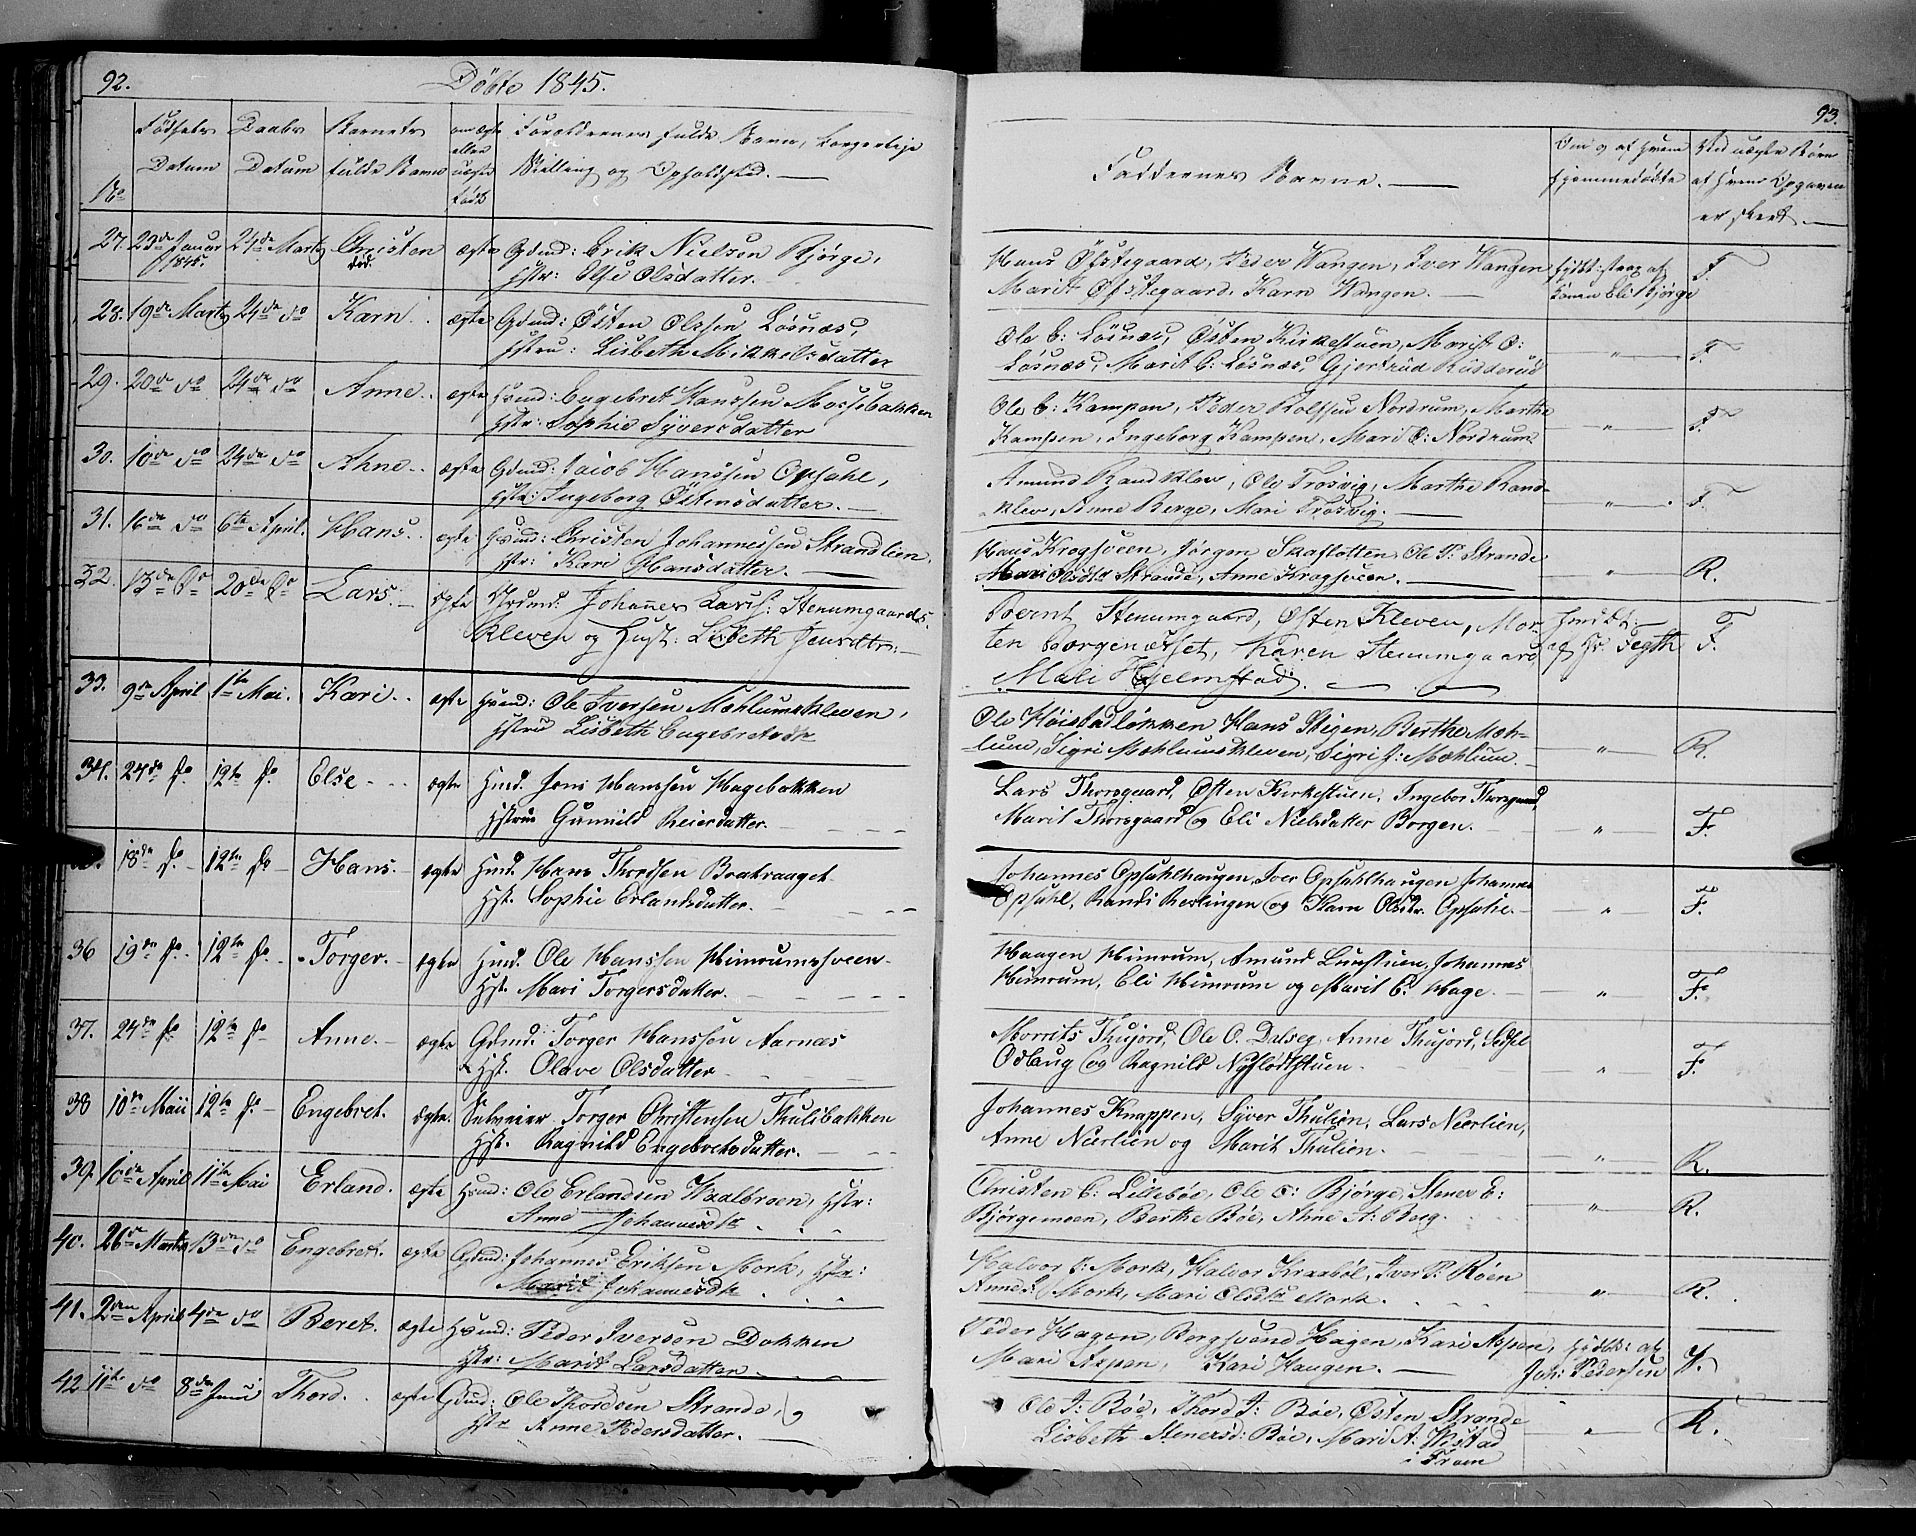 92. Döbte 1845.
No Födsels Datum Daabs Datum Barnets fulde Navn om ægte eller uægte født Forældrenes fulde Navn, borgerlige Stilling og Opholdsted.
27. 23de Januar 1845. 24de Marts Christen död. ægte Gdmd: Erik Nielsen Bjørge,
Hstr: Olsdatter.
28. 19de Marts 24de do Karn ægte Gdmd: Östen Olssen Lösnæs,
Hstru: Lisbeth Mikkelsdatter
29. 20de do 24de do Anne. ægte Hsmd: Engebret Hanssen Mossebakken
Hstr: Sophie Syversdatter
30. 10de do 24de do Ahne. ægte Gdmd: Jacob Hanssen Opsahl,
Hstr: Ingeborg Östensdatter.
31. 16de do 6te April. Hans. ægte Hsmd: Christen Johannessen Strandlien,
Hstr: Kari Hansdatter.
32. 13de do 20de do Lars. ægte Huusmd: Johannes Larss: Stenumgaards-
kleven og Hust: Lisbeth Jensdtr:
33. 9de April 1te Mai. Kari. ægte Hsmd: Ole Iversen Mæhlumskleven,
Hstru Lisbeth Engebretsdtr
34. 24de do 12te do Else ægte Hmd. Jens Hanssen Hagebakken
Hstrue Gunnild Reiersdatter.
18de do 12te do Hans. ægte Hmd. Hans Thordsen Bratvaaget
Hst. Sophie Erlandsdatter.
36 19de do 12te do Torger. ægte Hmd. Ole Hanssen Himrumssveen
Hst. Mari Torgersdatter.
37. 24de do 12te do Anne. ægte Gdmd. Torger Hanssen Aarnæs
Hst. Olave Olsdatter
38 10de Maii 12te do Engebret. ægte. Torger Christensen Thulibakken
Hst. Ragnild Engebretsdatter.
39. 10de April 11te Mai Erland. ægte Hsmd: Ole Erlandsen Waalbroen, Hstr:
Anne Johannesdtr
40. 26de Marts 13de do Engebret. ægte Gdmd: Johannes Eriksen Mork, Hstr:
Marit Johannesdtr
41. 2den April 4de do Beret. ægte Hsmd: Peder Iversen Dokken
Hstr: Marit Larsdatter
42 11te do 8de Juni Thord. ægte Gdmd: Ole Thordsen Strande, og
Hstr Anne Pedersdatter.
93.
Faddernes Navne. Om og af hvem hjemmedöbte Ved uægte Börn af hvem Opgaven er skeet.
Hans Öfstegaard, Peder Wangen, Iver Wangen hjdbt: strax af F.
Marit Öfstegaard, Karn Wangen. Konen Eli Bjørge
Ole E: Lösnæs, Østen Kirkestuen, Marit O: " F.
Lösnæs, Marit E: Lösnæs, Gjertrud Rudderud
Ole E: Kampen, Peder Rolfsen Nordrum, Marthe " F.
Kampen, Ingeborg Kampen, Mari O: Nordrum
Amund Randklev, Ole Trosvig, Marthe Rand- " F.
klev, Anne Berge, Mari Trosvig.
Hans Krogsveen, Jörgen Skaflotten, Ole P: Strande " R.
Mari Olsdtr Strande, Anne Krogsveen.
Bernt Stenumgaard, Østen Kleven, Mor- F.
ten Borgenæsset, Karen Stenumgaard af Hr. Fegth
Mali Hjelmstad.
Ole Höistadlökken, Hans Stigen, Berthe Mæh- " R.
lum, Sigri Mæhlumskleven, Sigri J: Mæhlum
Lars Thorsgaard, Østen Kirkestuen, Ingebor Thorsgaard " F.
Marit Thorsgaard og Eli Nielsdatter Borgen.
Johannes Opsahlhaugen, Iver Opsahlhaugen, Johannes " F.
Opsahl, Randi Kerlingen og Karn Olsdtr. Opsahl.
Haagen Himrum, Amund Lunstuen, Johannes " F.
Himrum, Eli Himrum og Marit E: Hage.
Morrits Thujord, Ole O. Dalseg, Anne Thujord, " F.
Odlaug og Ragnild Nyflödtstuen
Johannes Knappen, Syver Thulien, Lars Nerlien, " R.
Anne Nerlien og Marit Thulien.
Christen E: Lillebøe, Ole O: Bjørge, Stener E: " R.
Bjørgemoen, Berthe Bøe, Ahne A: Berg.
Halvor E: Mork, Halvor Kraabøl, Iver P: Röen " R.
Anne Mork, Mari Olsdtr Mork.
Peder Hagen, Bergsvend Hagen, Kari Aspen, hjdbt: af F.
Mari Aspen, Kari Haugen. Joh: Pedersen
Ole J: Bøe, Thord J: Bøe, Østen Strande " R.
Lisbeth Stenersd: Bøe, Mari A: Wistad
i Troen